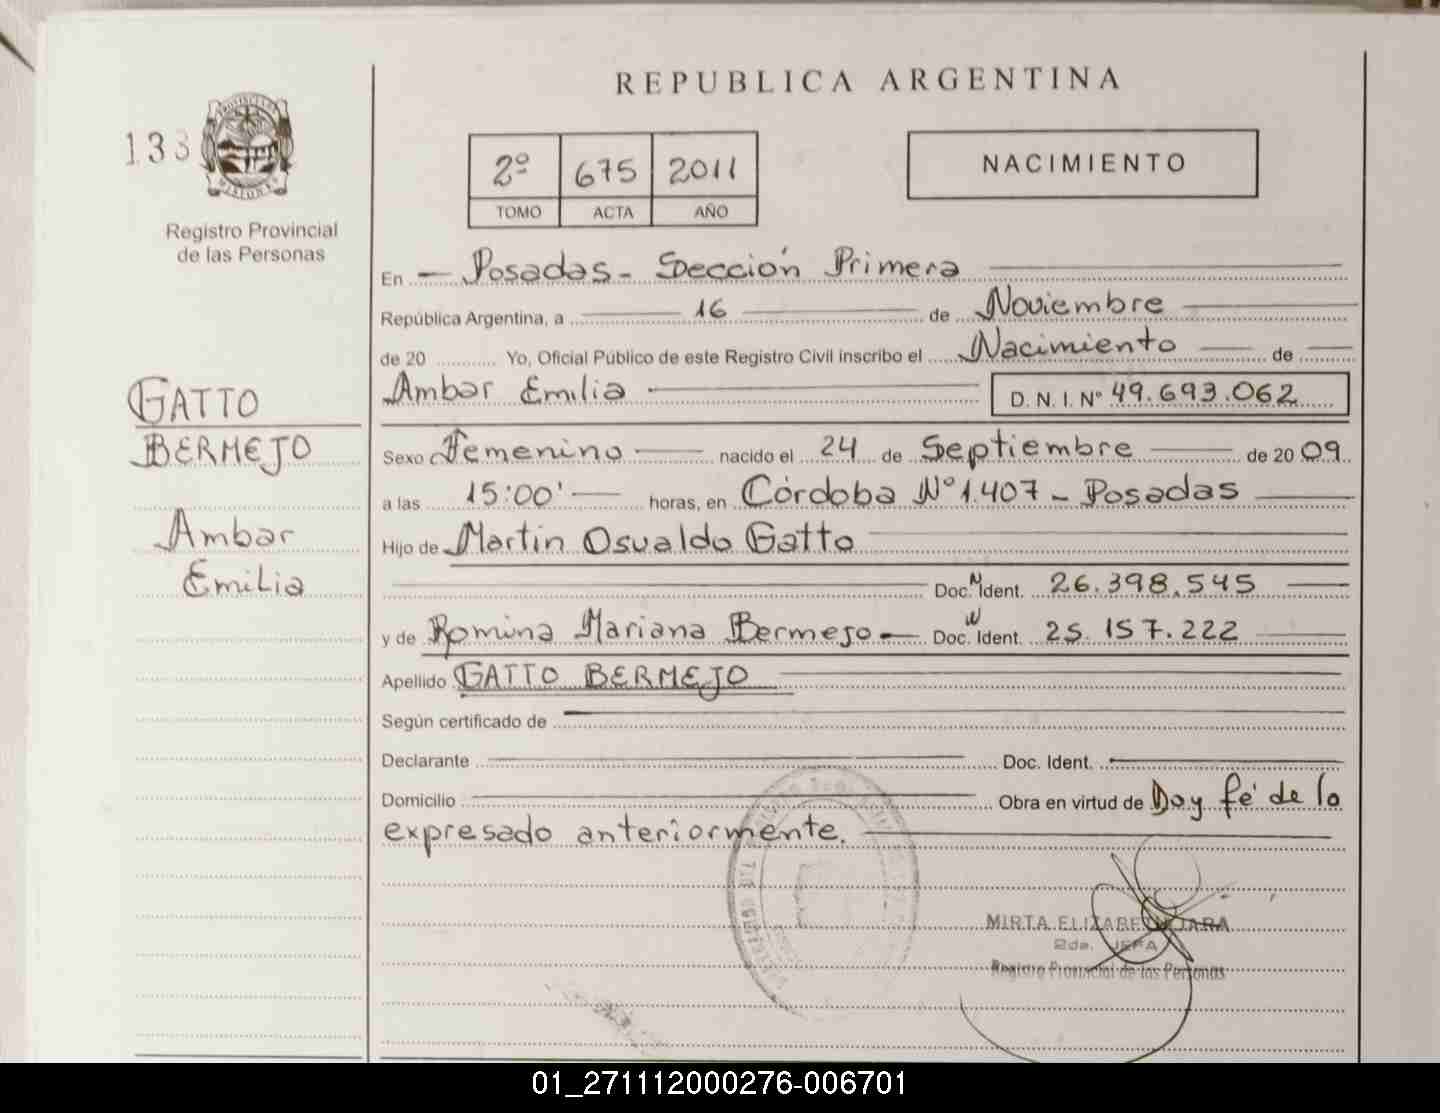 REPUBLICA ARGENTINA
133
2º 675 2011
TOMO ACTA AÑO
NACIMIENTO
Registro Provincial
de las Personas
En Posadas - Sección Primera
República Argentina, a 16 de Noviembre
de 20 Yo, Oficial Público de este Registro Civil inscribo el Nacimiento de
Ambar Emilia D. N. I. Nº 49.693.062
GATTO
BERMEJO
Ambar
Emilia
Sexo Femenino nacido el 24 de Septiembre de 2009
a las 15:00' horas, en Córdoba Nº 1.407 - Posadas
Hijo de Martin Osvaldo Gatto
Doc. N Ident. 26.398.545
y de Romina Mariana Bermejo Doc. N Ident. 25.157.222
Apellido GATTO BERMEJO
Según certificado de
Declarante Doc. Ident.
Domicilio Obra en virtud de Doy fé de lo
expresado anteriormente.
MIRTA ELIZABETH JARA
2da. JEFA
Registro Provincial de las Personas
01_271112000276-006701